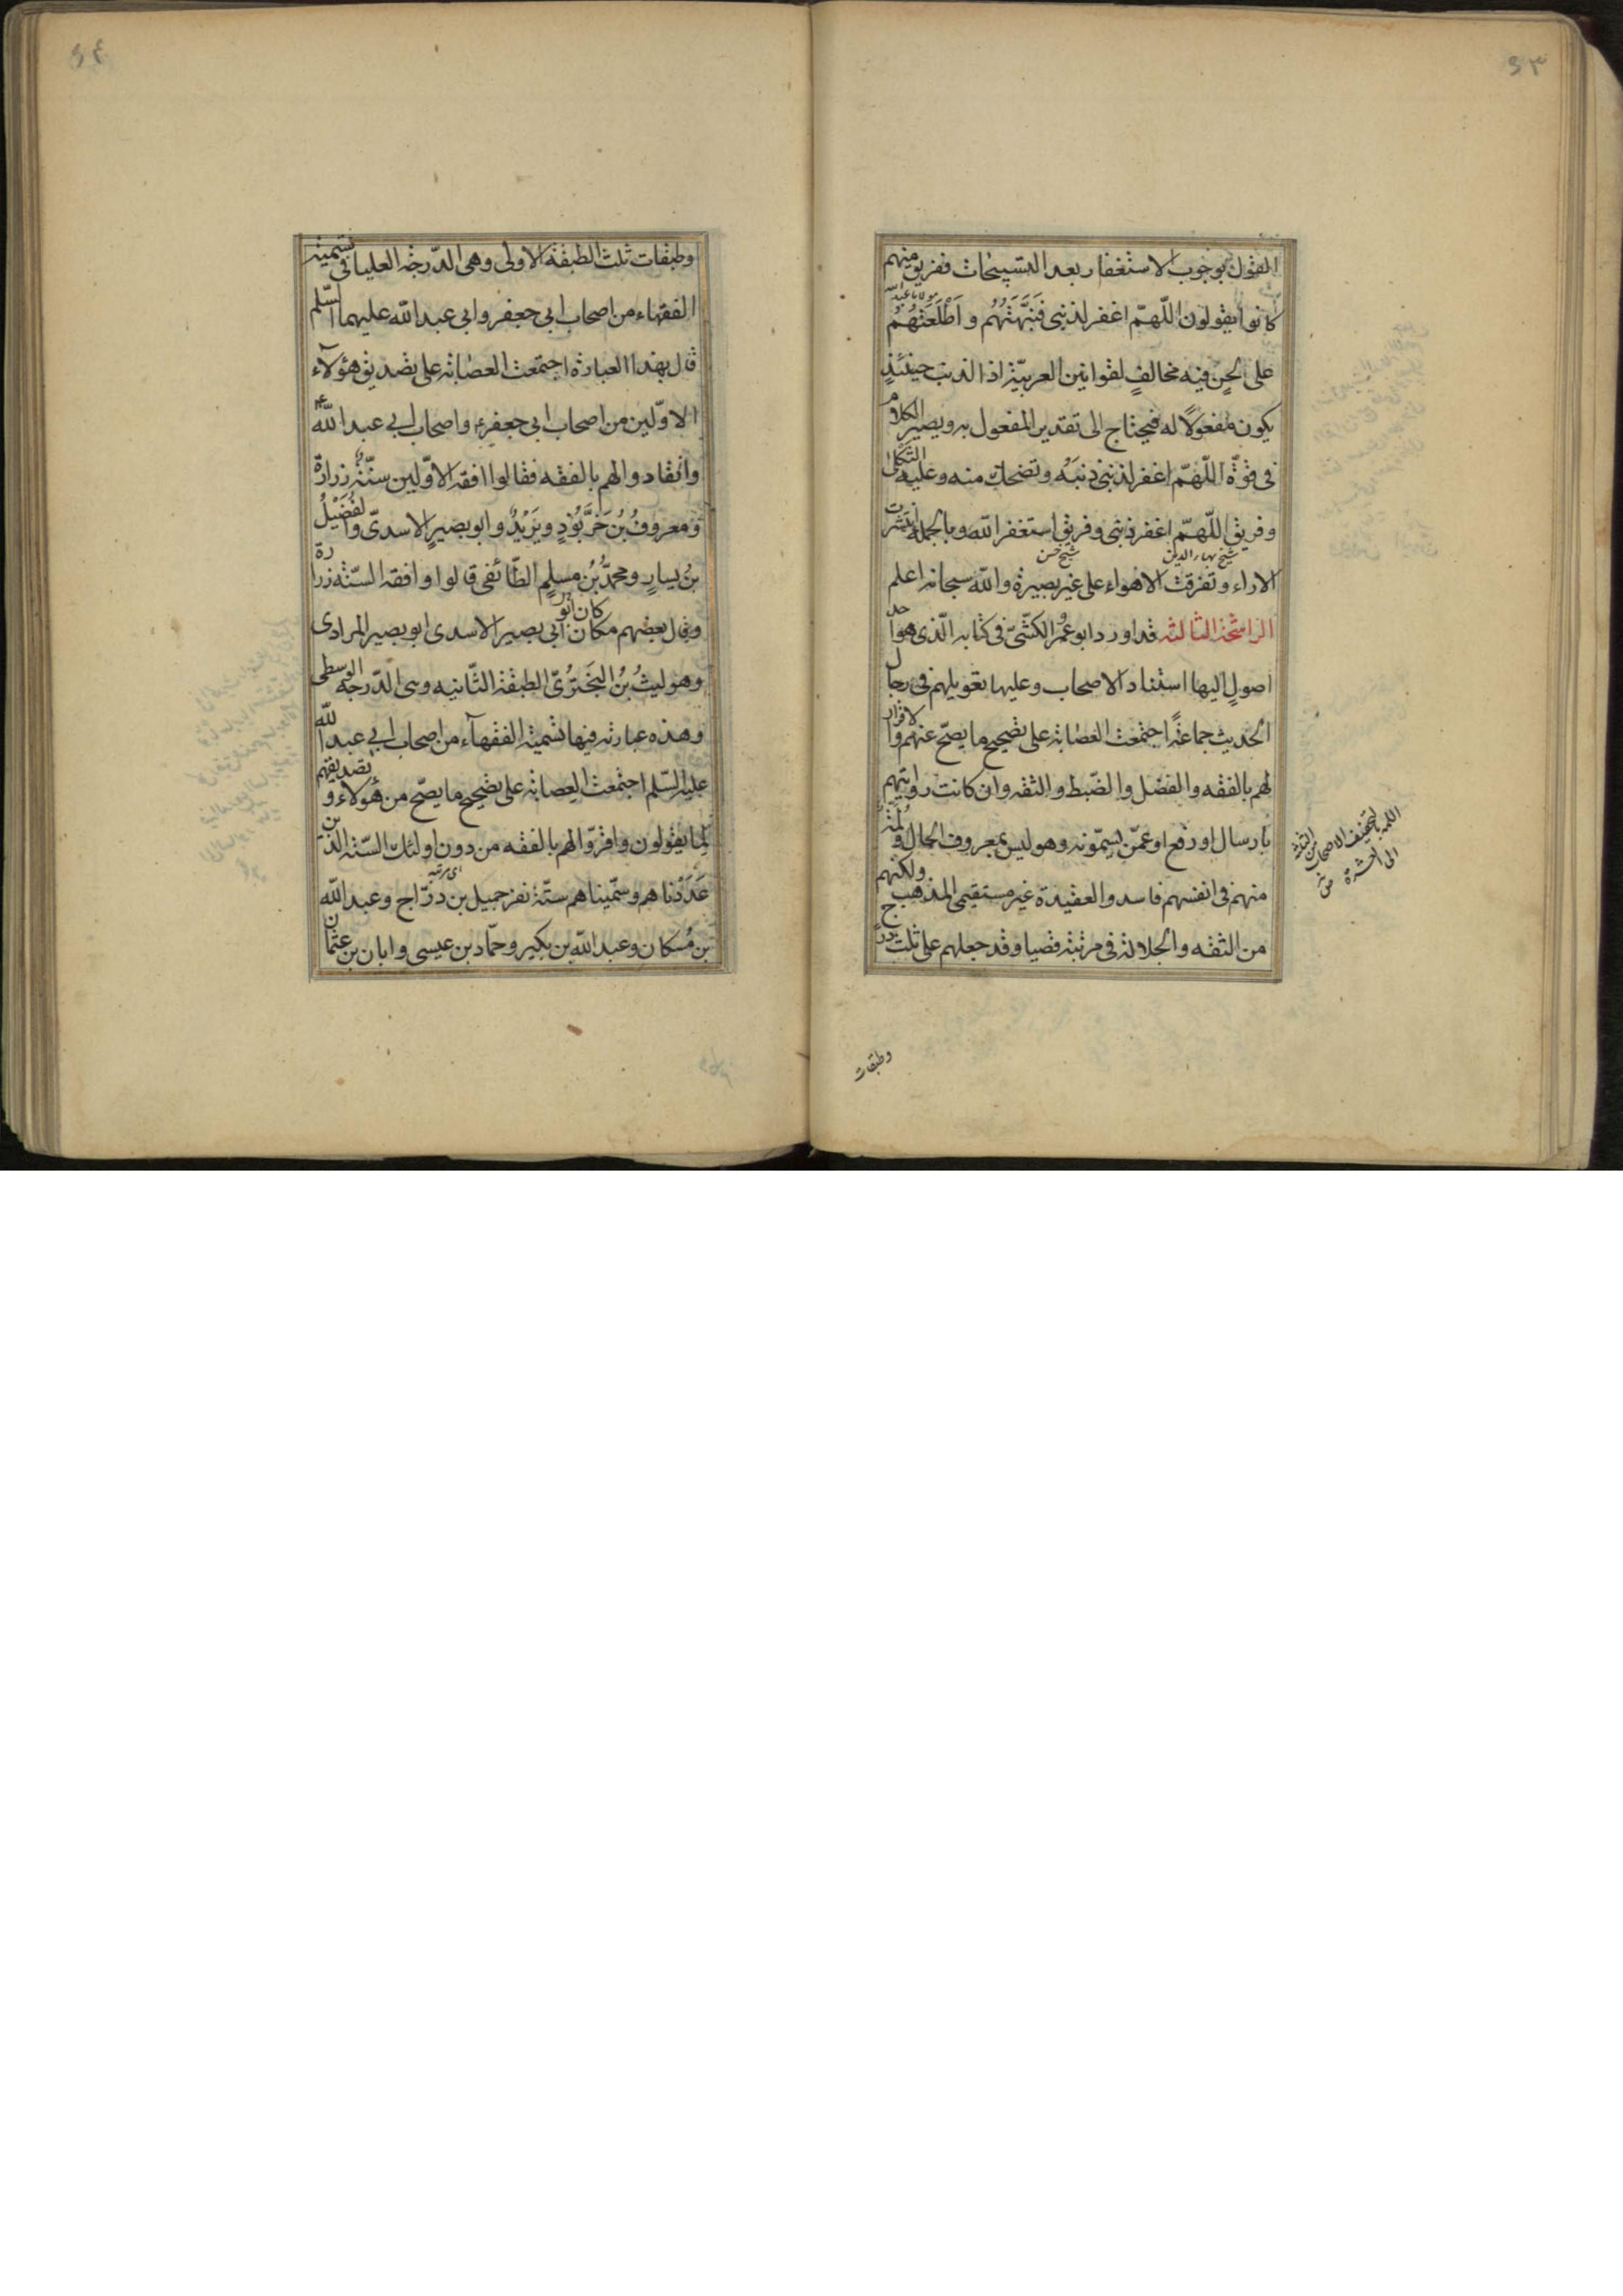 ٤٣
القول بوجوب الاستغفار بعد التسبيحات ففريق منهم
كانوا يقولون اللّهمّ اغفر لذنبى فَنَبَّهَتْهُم و اَطْلَعَتْهُم
على لحنٍ فيه مخالفٍ لقوانين العربيّة اذ الذنب حينئذٍ
يكون مفعولًا له فيحتاج الى تقدير المفعول به و يصير الكلام
فى قوّة اللّهمّ اغفر لذنبى ذنبَه و تضحك منه و عليه الثَّكْلى
و فريق اللّهمّ اغفر ذنبى و فريق استغفر الله و بالجملة انتشرت
شيخ بهاء الدين شيخ حسن
الاراء و تفرقت الاهواء على غير بصيرة و الله سبحانه اعلم
الراشحة الثالثه قد اورد ابو عمر الكشّىّ فى كتابه الّذى هو احد
اصولٍ اليها استناد الاصحاب و عليها تعويلهم فى رجال
الحديث جماعةً اجتمعت العصابة على تصحيح ما يصحّ عنهم و الاقرار
لهم بالفقه و الفضل و الضّبط و الثقه و ان كانت روايتهم
بارسال او رفع او عمّن يسمّونه و هو ليس بمعروف الحال و لمّة
منهم فى انفسهم فاسدو العقيدة غير مستقيمى المذهب و لكنّهم
من الثقه و الجلالة فى مرتبة قصيا و قد جعلهم على ثلث درج
وطبقات
٤٤
وطبقات ثلث الطبقة الاولى و هى الدّرجة العليا فى تسمية
الفقهاء من اصحاب ابى جعفر و ابى عبد الله عليهما السّلم
قال بهذا العبارة اجتمعت العصابة على تصديق هؤلاء
الاوّلين من اصحاب ابى جعفر ع و اصحاب ابى عبد الله ع
و انقادوا لهم بالفقه فقالوا افقه الاوّلين ستّة زرارة
و معروفُ بنُ خَرَّبُوذٍ و بُرَيْدٌ و ابو بصيرٍ الاسدىّ و الفُضَيْلُ
بنُ يسارٍ و محمّدُ بْنُ مسلمٍ الطّائفى قالوا و افقه السّتة زرارة
و قال بعضهم مكان ابى بصير الاسدى ابو بصير المرادى
و هو ليثُ بْنُ البَخْتَرُىّ الطبقة الثّانيه و هى الدّرجة الوسطى
و هذه عبارته فيها تسمية الفقهآء من اصحاب ابى عبد الله
عليه السّلم اجتمعت العِصابة على تصحيح ما يصحّ من هؤلاء و تصديقهم
لِما يقولون و اقرّوا لهم بالفقه من دون اولئك السّتة الذين
عَدَدْناهم و سمّيناهم ستّة نفر جميل بن درّاج و عبد الله
بن مُسكان و عبد الله بن بكير و حمّاد بن عيسى و ابان بن عثمان